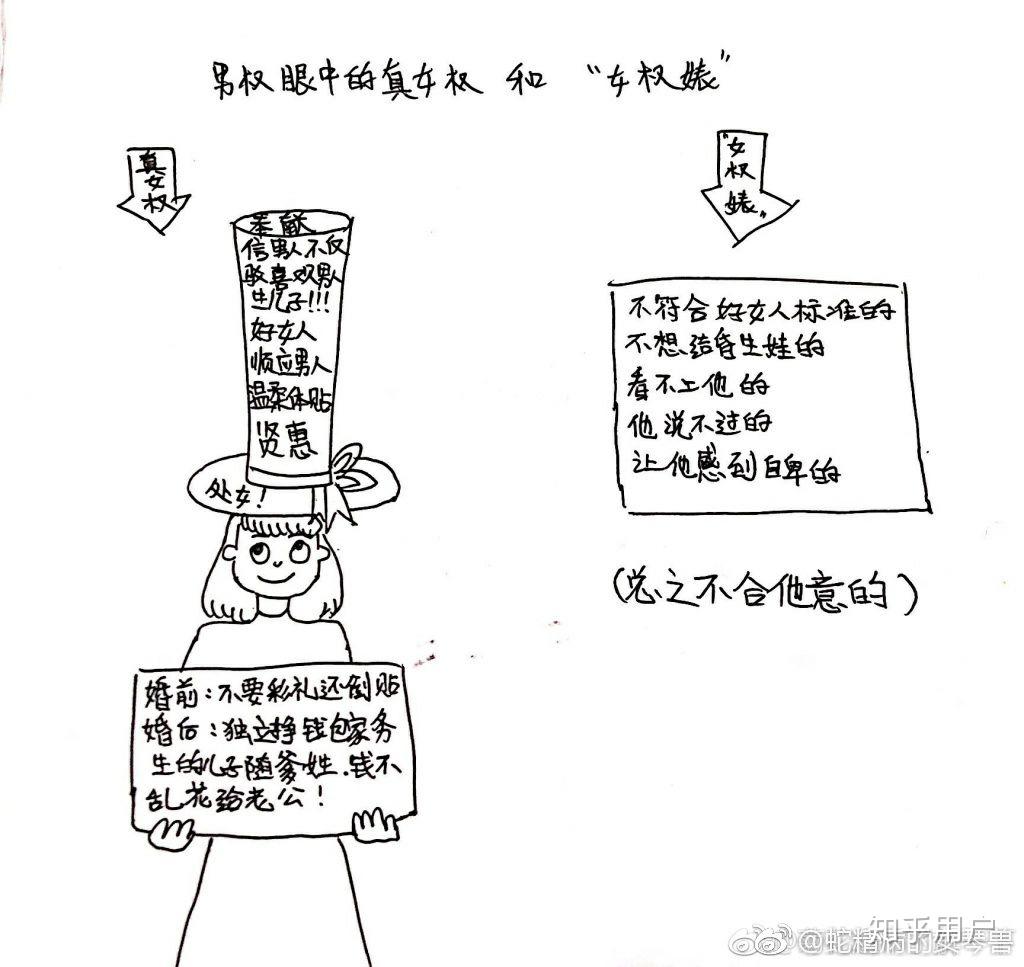 男权眼中的真女权 和 “女权婊”
真女权
奉献
信男人不仅
驳喜欢男人
生儿子!!!
好女人
顺应男人
温柔体贴
贤惠
处女!
婚前:不要彩礼还倒贴
婚后:独立挣钱包家务
生的儿子随爹姓.钱不
乱花给老公!
“女权婊”
不符合好女人标准的
不想结婚生娃的
看不上他的
他说不过的
让他感到自卑的
(总之不合他意的)
知乎用户
@蛇精病的